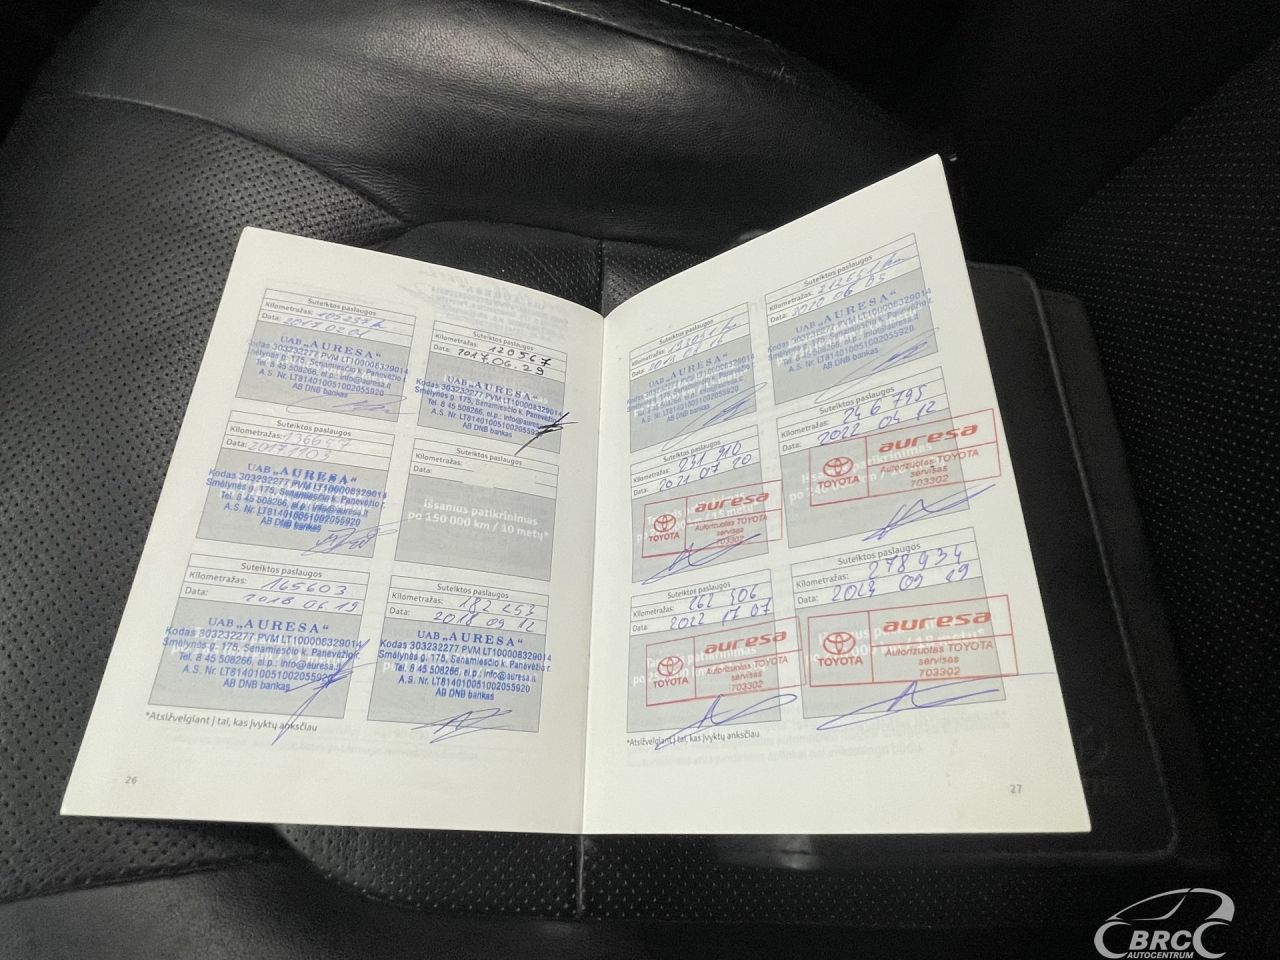 Suteiktos paslaugos
Kilometražas: 105237 km
Data: 2017.02.01
UAB „AURESA“
Kodas 303232277 PVM LT100008329014
Smėlynės g. 175, Senamiesčio k. Panevėžio r.
Tel. 8 45 508266, el.p.: info@auresa.lt
A.S. Nr. LT814010051002055920
AB DNB bankas
Suteiktos paslaugos
Kilometražas: 120567
Data: 2017.06.29
UAB „AURESA“
Kodas 303232277 PVM LT100008329014
Smėlynės g. 175, Senamiesčio k. Panevėžio r.
Tel. 8 45 508266, el.p.: info@auresa.lt
A.S. Nr. LT814010051002055920
AB DNB bankas
Suteiktos paslaugos
Kilometražas: 136657
Data: 20171103
UAB „AURESA“
Kodas 303232277 PVM LT100008329014
Smėlynės g. 175, Senamiesčio k. Panevėžio r.
Tel. 8 45 508266, el.p.: info@auresa.lt
A.S. Nr. LT814010051002055920
AB DNB bankas
Suteiktos paslaugos
Kilometražas:
Data:
Išsamus patikrinimas
po 150 000 km / 10 metų*
Suteiktos paslaugos
Kilometražas: 165603
Data: 2018 06 19
UAB „AURESA“
Kodas 303232277 PVM LT100008329014
Smėlynės g. 175, Senamiesčio k. Panevėžio r.
Tel. 8 45 508266, el.p.: info@auresa.lt
A.S. Nr. LT814010051002055920
AB DNB bankas
Suteiktos paslaugos
Kilometražas: 182 253
Data: 2018 09 12
UAB „AURESA“
Kodas 303232277 PVM LT100008329014
Smėlynės g. 175, Senamiesčio k. Panevėžio r.
Tel. 8 45 508266, el.p.: info@auresa.lt
A.S. Nr. LT814010051002055920
AB DNB bankas
*Atsižvelgiant į tai, kas įvyktų anksčiau
26
Suteiktos paslaugos
Kilometražas:
Data:
UAB „AURESA“
Suteiktos paslaugos
Kilometražas:
Data: 2020 06 05
UAB „AURESA“
Kodas 303232277 PVM LT100008329014
Smėlynės g. 175, Senamiesčio k. Panevėžio r.
Tel. 8 45 508266, el.p.: info@auresa.lt
A.S. Nr. LT814010051002055920
AB DNB bankas
Suteiktos paslaugos
Kilometražas: 231 910
Data: 2021 07 20
TOYOTA
auresa
Autorizuotas TOYOTA
servisas
703302
Suteiktos paslaugos
Kilometražas: 246 795
Data: 2022 04 12
TOYOTA
auresa
Autorizuotas TOYOTA
servisas
703302
Suteiktos paslaugos
Kilometražas: 262 506
Data: 2022 17 07
TOYOTA
auresa
Autorizuotas TOYOTA
servisas
703302
Suteiktos paslaugos
Kilometražas: 278 934
Data: 2023 09 29
TOYOTA
auresa
Autorizuotas TOYOTA
servisas
703302
*Atsižvelgiant į tai, kas įvyktų anksčiau
27
BRC
AUTOCENTRUM